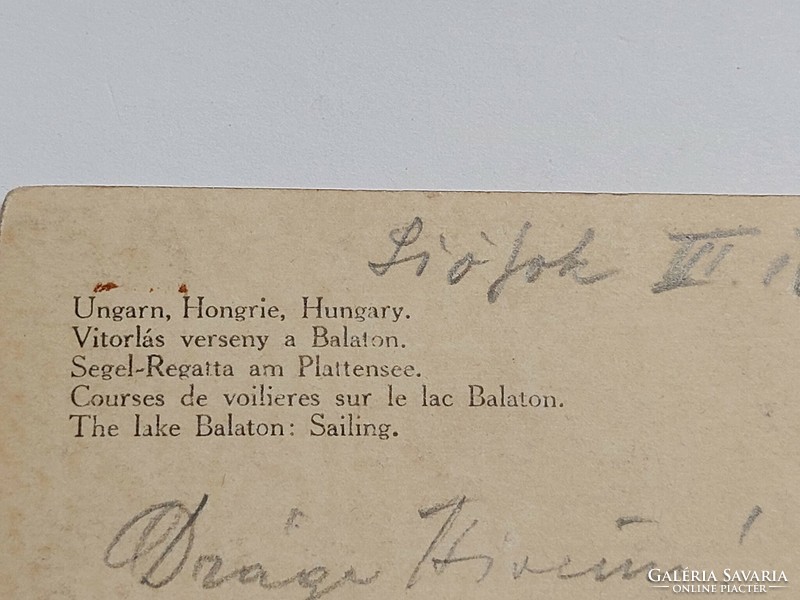 Siófok VII.
Ungarn, Hongrie, Hungary.
Vitorlás verseny a Balaton.
Segel-Regatta am Plattensee.
Courses de voilieres sur le lac Balaton.
The lake Balaton: Sailing.
Drága
GALÉRIA SAVARIA
ONLINE PIACTÉR